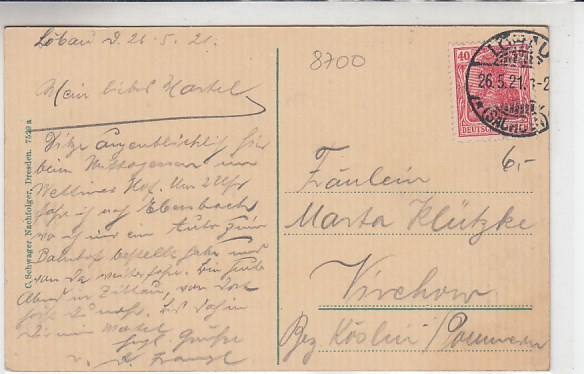 Löbau d. 26.5.21.
Mein liebes Martel
Sitze augenblicklich hier
beim Mittagessen im
Wettiner Hof. Um 2 Uhr
fahr ich nach Ebersbach
wo ich mir ein Auto zum
Bahnhof bestellt habe und
von da weiterfahre. Bin heute
Abend in Zittau, von dort
mehr. Bis dahin
Dir mein Martel
Grüße
C. Schwager Nachfolger, Dresden. 7529a
8700
40
DEUTSCHES
LÖBAU
26.5.21.
(SACHSEN)
6,-
Fräulein
Marta Klützke
Virchow
Bez. Köslin / Pommern